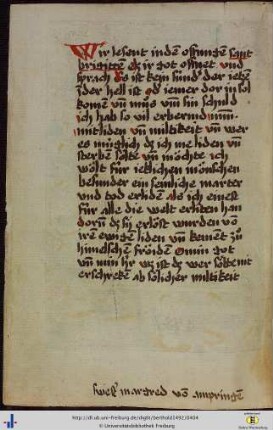 Wir lesent in den̄ offnungen sant
brigitten dz ir got offnet vnd
sprach Es ist kein sünder der ietz
in der hell ist od iemer dor in sol
komen vn̄ müs vm̄ sin schuld
ich hab so vil erbermd min̄
mitliden vn̄ miltikeit vn̄ wer
es müglich dz ich me liden vn̄
sterben sölte vn̄ möchte ich
wölt für ietlichen mönschen
besunder ein semliche marter
vnd tod erliden als ich einest
für alle die welt erliten han
dorum̄ dz sy erlöst wurden vō
iren ewigen liden vn̄ kement zu
himelschen fröiden O min got
vn̄ min her wz ist dz wer sölte nit
erschreken ab sölicher miltikeit
swest margred vō ampringen
http://dl.ub.uni-freiburg.de/diglit/berthold1492/0404
© Universitätsbibliothek Freiburg